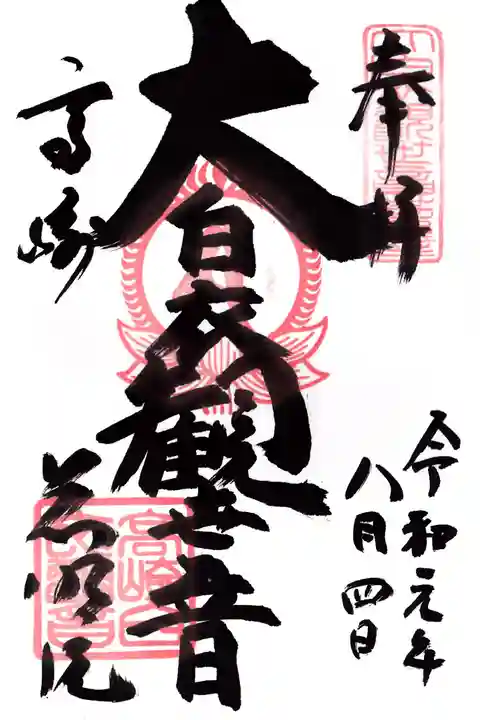 奉拝
令和元年
八月四日
大白衣観世音
高崎
慈眼院